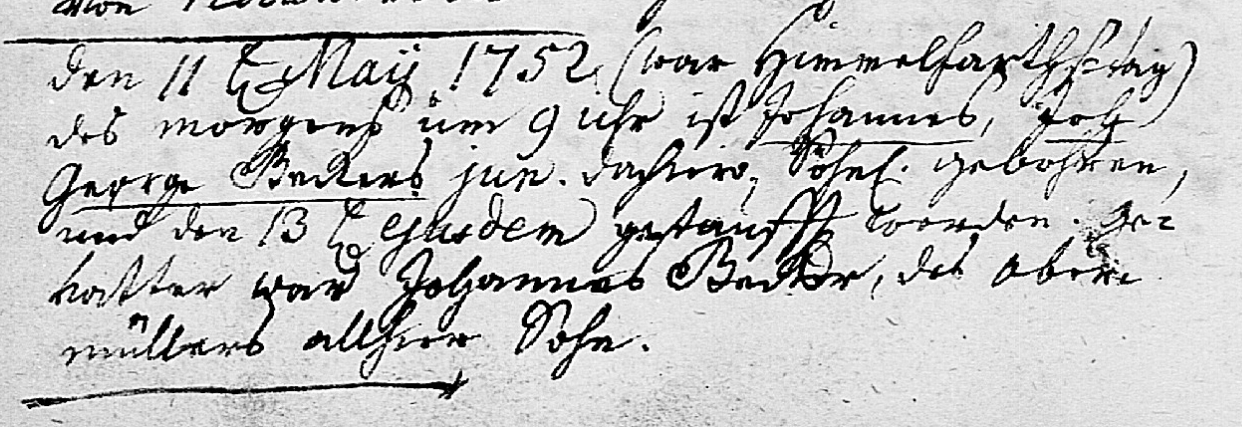 von
den 11t Maij 1752. (war Himmelfarthstag)
des morgens üm 9 uhr ist Johannes, Joh
George Beckers jun. dahier, Söhnl. gebohren,
und den 13t ejusdem getaufft worden. Ge=
vatter war Johannes Becker, des Ober=
müllers allhier Sohn.